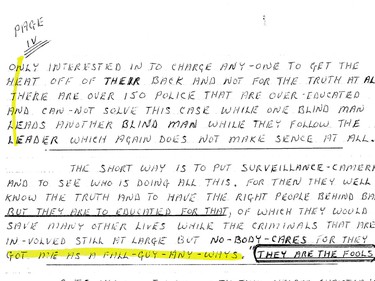 PAGE
IV
ONLY INTERESTED IN TO CHARGE ANY-ONE TO GET THE
HEAT OFF OF THEIR BACK AND NOT FOR THE TRUTH AT AL
THERE ARE OVER 150 POLICE THAT ARE OVER-EDUCATED
AND CAN-NOT SOLVE THIS CASE WHILE ONE BLIND MAN
LEADS ANOTHER BLIND MAN WHILE THEY FOLLOW THE
LEADER WHICH AGAIN DOES NOT MAKE SENCE AT ALL.
THE SHORT WAY IS TO PUT SURVEILLANCE-CAMER
AND TO SEE WHO IS DOING ALL THIS. FOR THEN THEY WELL
KNOW THE TRUTH AND TO HAVE THE RIGHT PEOPLE BEHIND BA
BUT THEY ARE TO EDUCATED FOR THAT, OF WHICH THEY WOULD
SAVE MANY OTHER LIVES WHILE THE CRIMINALS THAT ARE
IN-VOLVED STILL AT LARGE BUT NO-BODY-CARES FOR THEY
GOT ME AS A FALL-GUY-ANY-WAYS. THEY ARE THE FOOLS